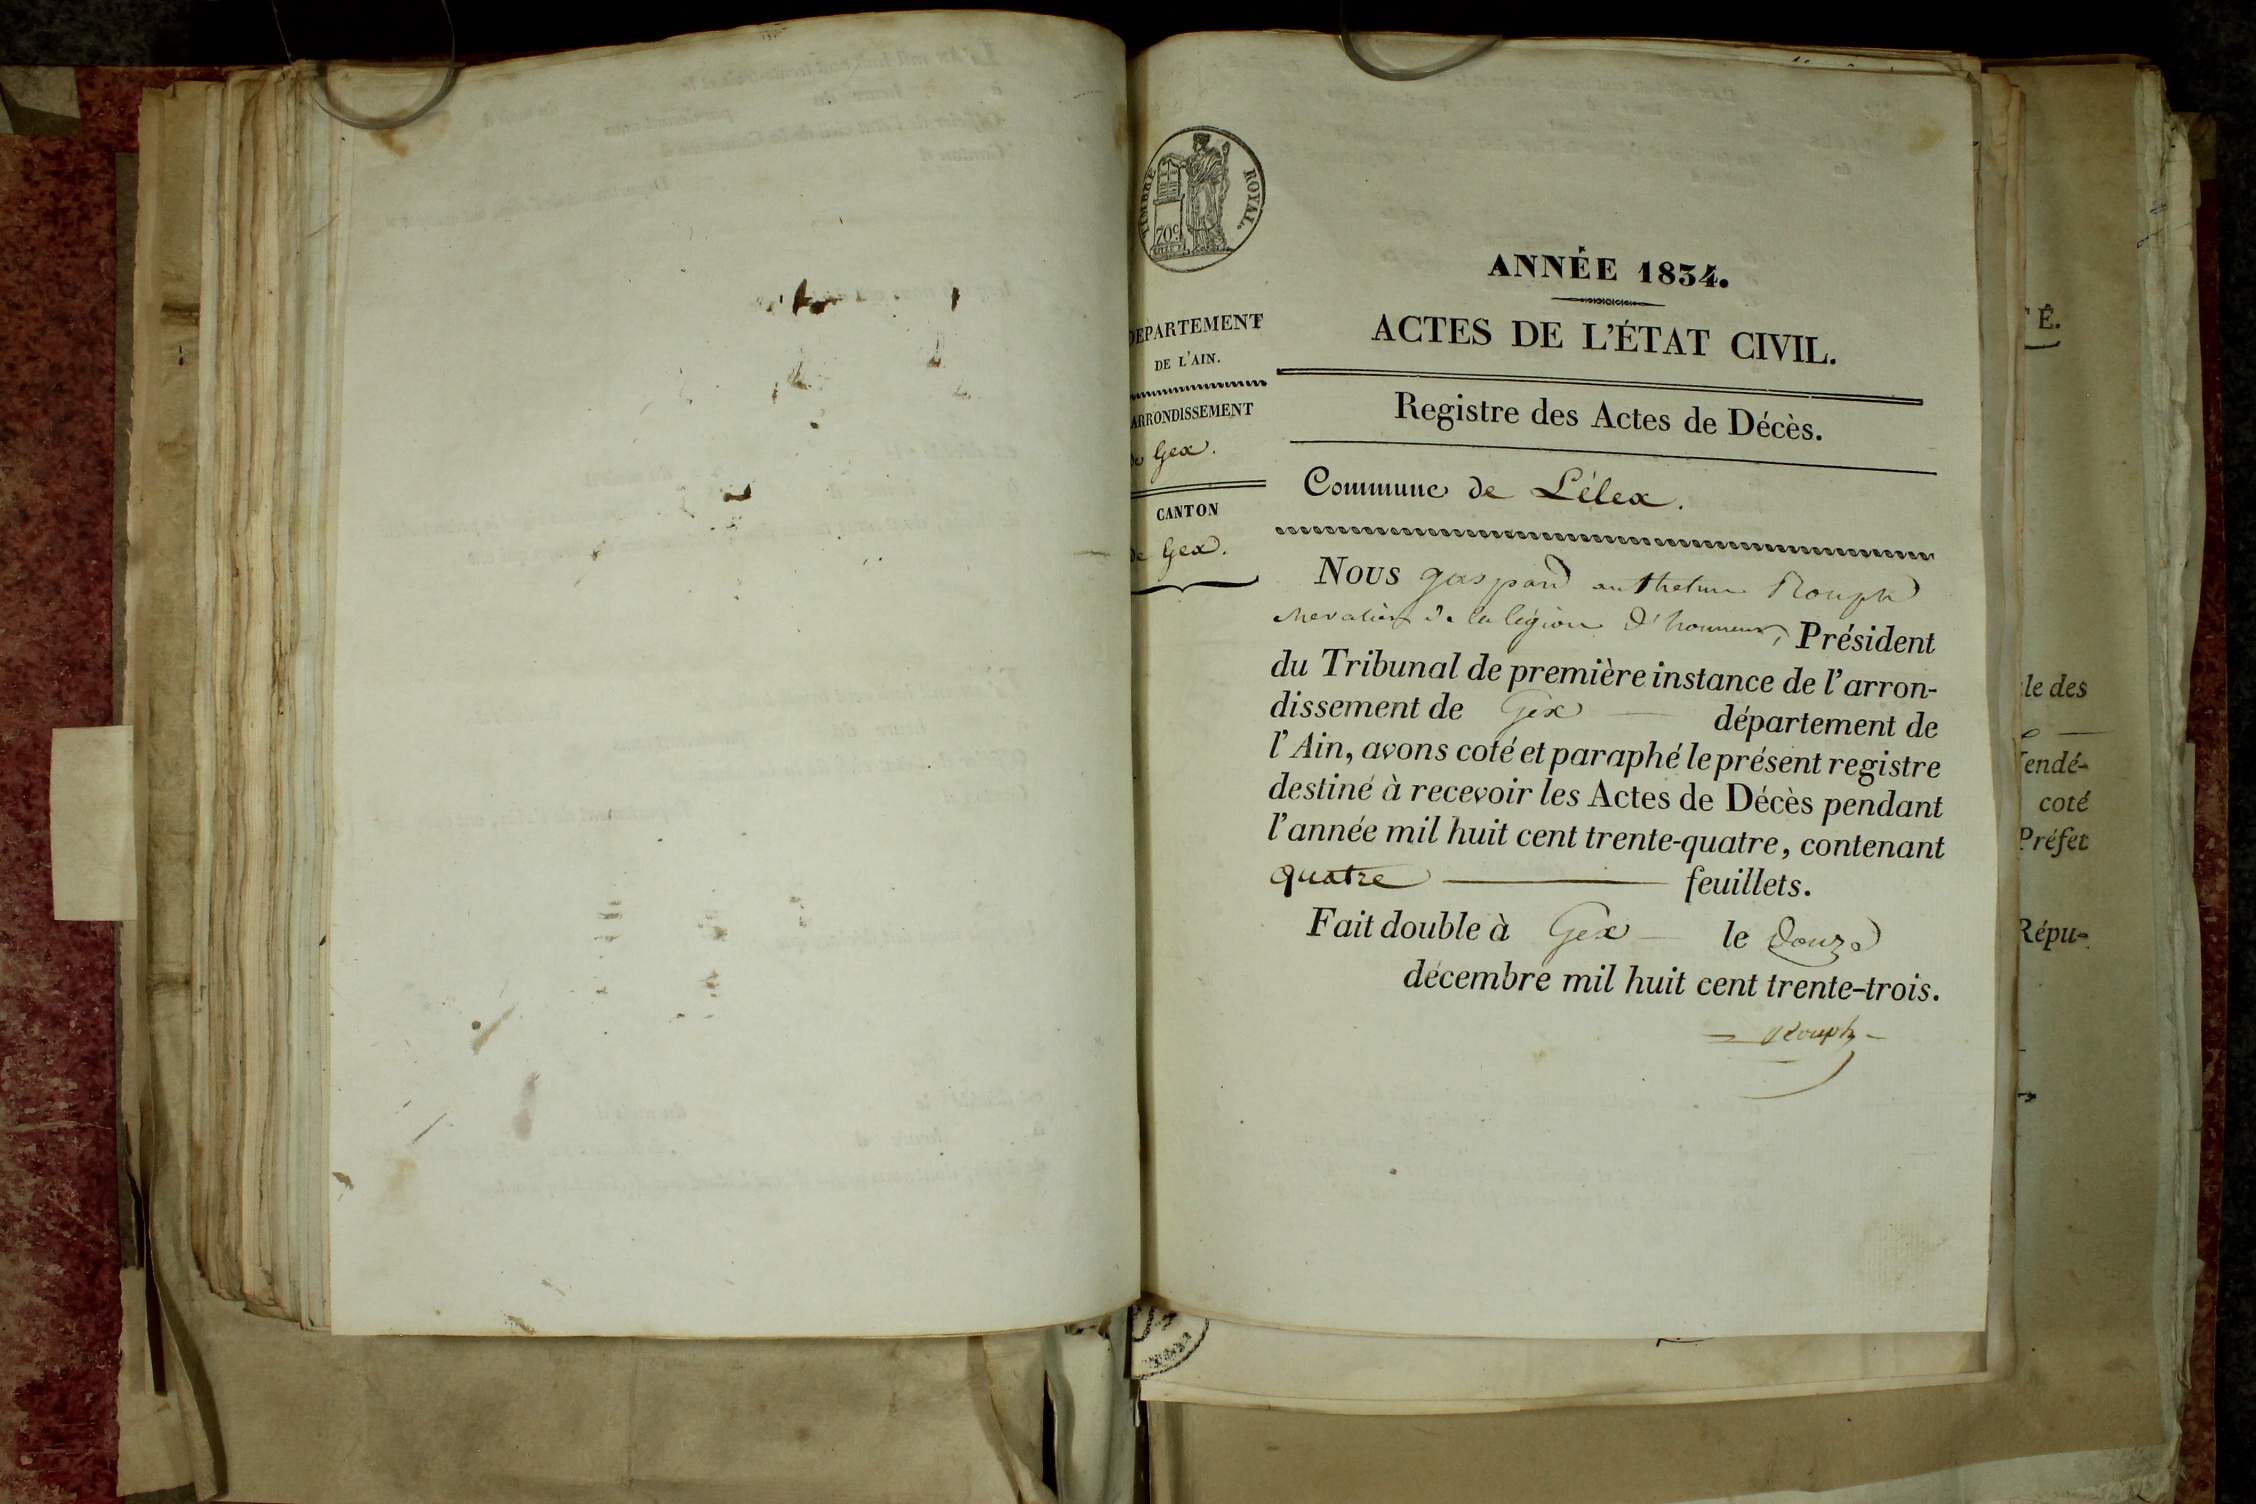 TIMBRE ROYAL.
70c
DEPARTEMENT
DE L'AIN.
ARRONDISSEMENT
de Gex.
CANTON
de Gex.
ANNÉE 1834.
ACTES DE L'ÉTAT CIVIL.
Registre des Actes de Décès.
Commune de Lélex.
Nous gaspard anthelme Rouph
chevalier de la légion d'honneur, Président
du Tribunal de première instance de l'arron-
dissement de Gex département de
l'Ain, avons coté et paraphé le présent registre
destiné à recevoir les Actes de Décès pendant
l'année mil huit cent trente-quatre, contenant
quatre feuillets.
Fait double à Gex le douze
décembre mil huit cent trente-trois.
Rouph
É.
le des
endé-
coté
Préfet
Répu-